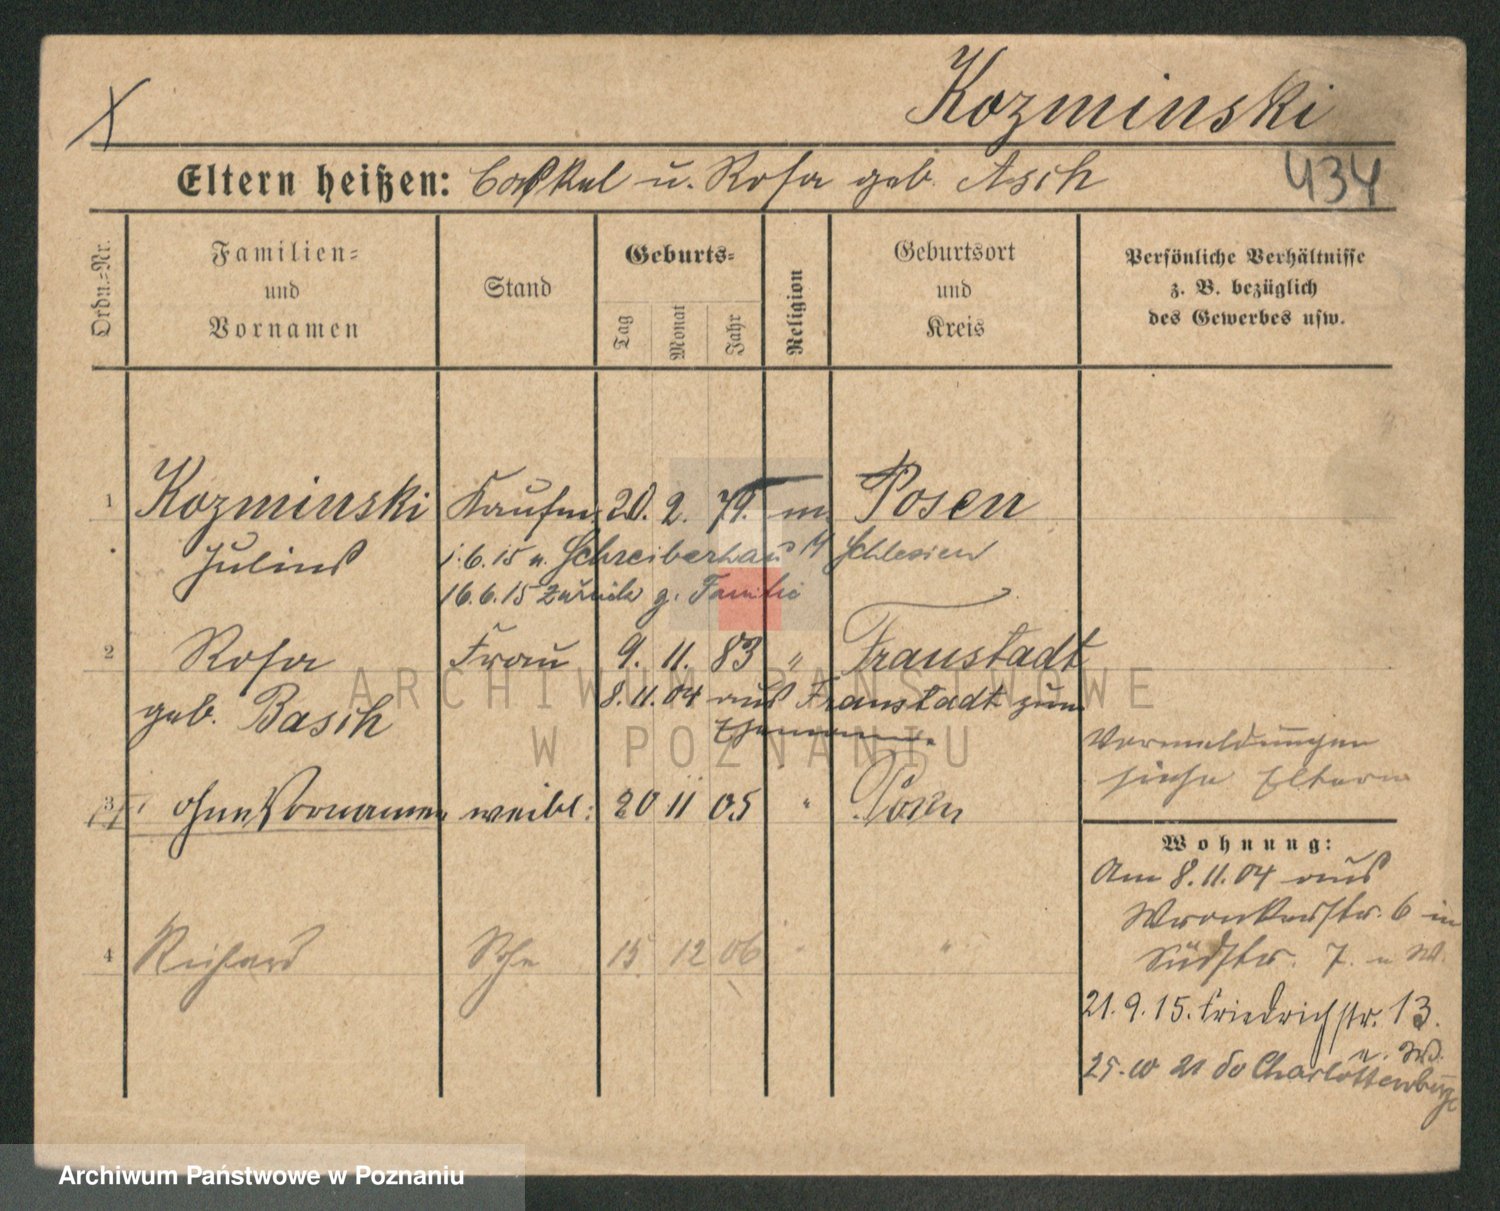 Kozminski
Eltern heißen: Caskel u. Rosa geb. Asch
434
Ordn.-Nr.
Familien-
und
Vornamen
Stand
Geburts-
Tag
Monat
Jahr
Religion
Geburtsort
und
Kreis
Persönliche Verhältnisse
z. B. bezüglich
des Gewerbes usw.
1 Kozminski Kaufm. 20. 2. 79. m Posen
Julius
1.6.15 n. Schreiberhau Schlesien
16.6.15 zurück z. Familie
2 Rosa Frau 9. 11. 83 " Fraustadt
geb. Basch
8.11.04 aus Fraustadt zum
Ehemann.
Vormeldungen
siehe Eltern
3 ohne Vornamen weibl: 20 11 05 " Posen
4 Richard Sohn 15 12 06 " "
Wohnung:
Am 8.11.04 aus
Wronkerstr. 6 in
Südstr. 7. n W.
21.9.15. Friedrichstr. 13.
n. W.
25.10 21 do Charlottenburg
ARCHIWUM PAŃSTWOWE
W POZNANIU
Archiwum Państwowe w Poznaniu